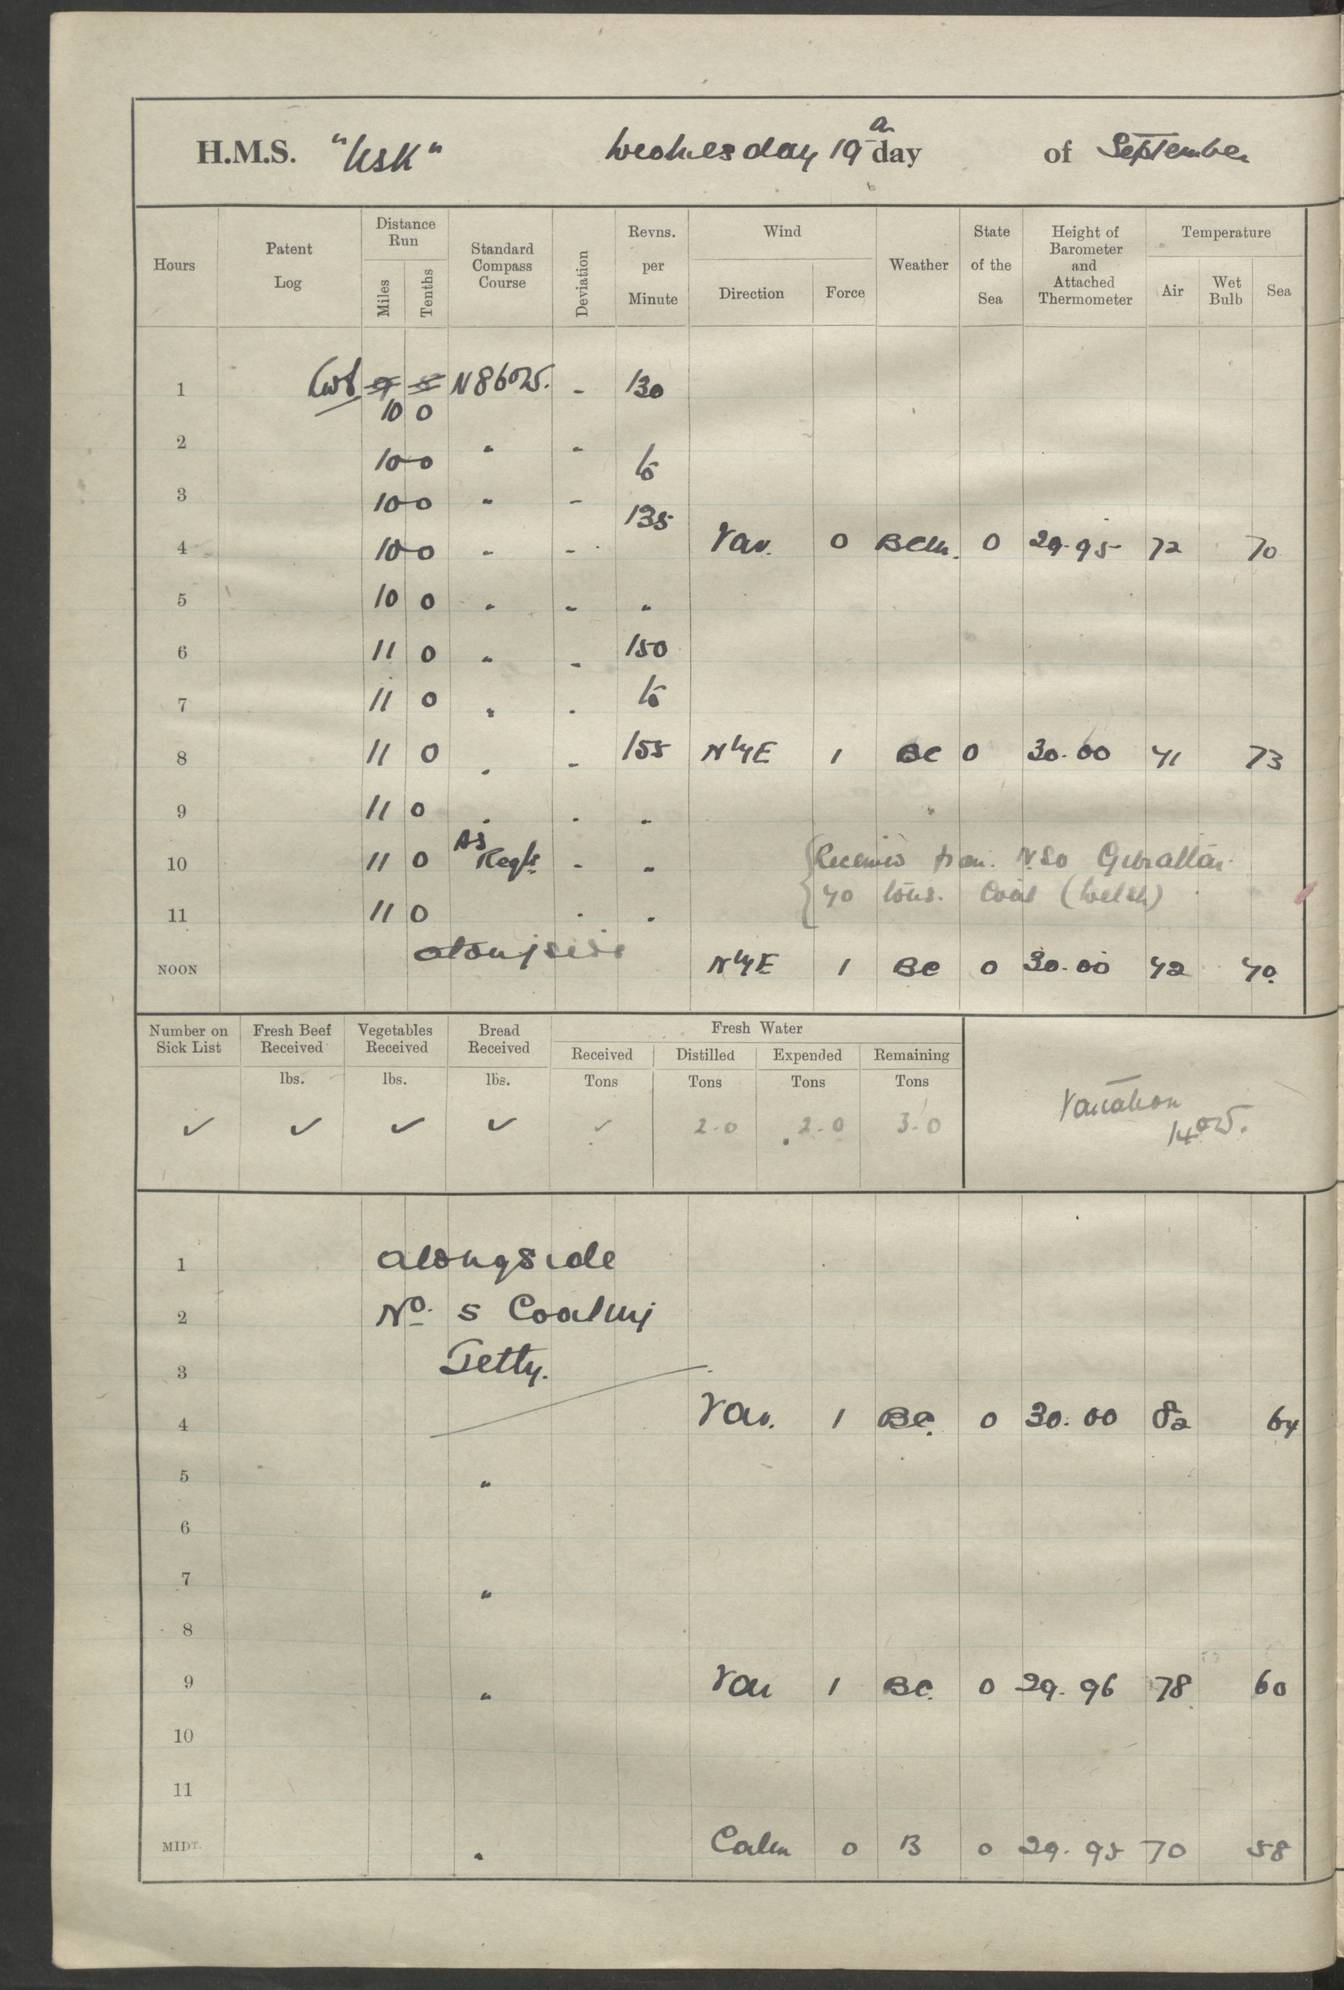 H.M.S. "Usk" Wednesday 19th day of September
Hours Patent Log Distance Run Miles Tenths Standard Compass Course Deviation Revns. per Minute Wind Direction Force Weather State of the Sea Height of Barometer and Attached Thermometer Temperature Air Wet Bulb Sea
1 N 86° W. - 130
10 0
2 10 0 " - to
3 10 0 " - 135
4 10 0 " - Var. 0 Bcm. 0 29.95 72 70
5 10 0 " - "
6 11 0 " - 150
7 11 0 " - to
8 11 0 " - 155 N'ly E 1 BC 0 30.00 71 73
9 11 0 " - "
10 11 0 As Reqte. - " Received from N.S.O Gibraltar
11 11 0 - " 40 tons. Coal (Welsh)
NOON alongside N'ly E 1 BC 0 30.00 72 70
Number on Sick List Fresh Beef Received lbs. Vegetables Received lbs. Bread Received lbs. Fresh Water Received Tons Distilled Tons Expended Tons Remaining Tons
✓ ✓ ✓ ✓ ✓ 2.0 2.0 3.0 Variation 14° W.
1 alongside
2 No. 5 Coaling
3 Jetty.
4 Var. 1 BC. 0 30.00 82 64
5 "
6
7 "
8
9 " Var 1 BC. 0 29.96 78 60
10
11
MIDT. " Calm 0 B 0 29.95 70 58